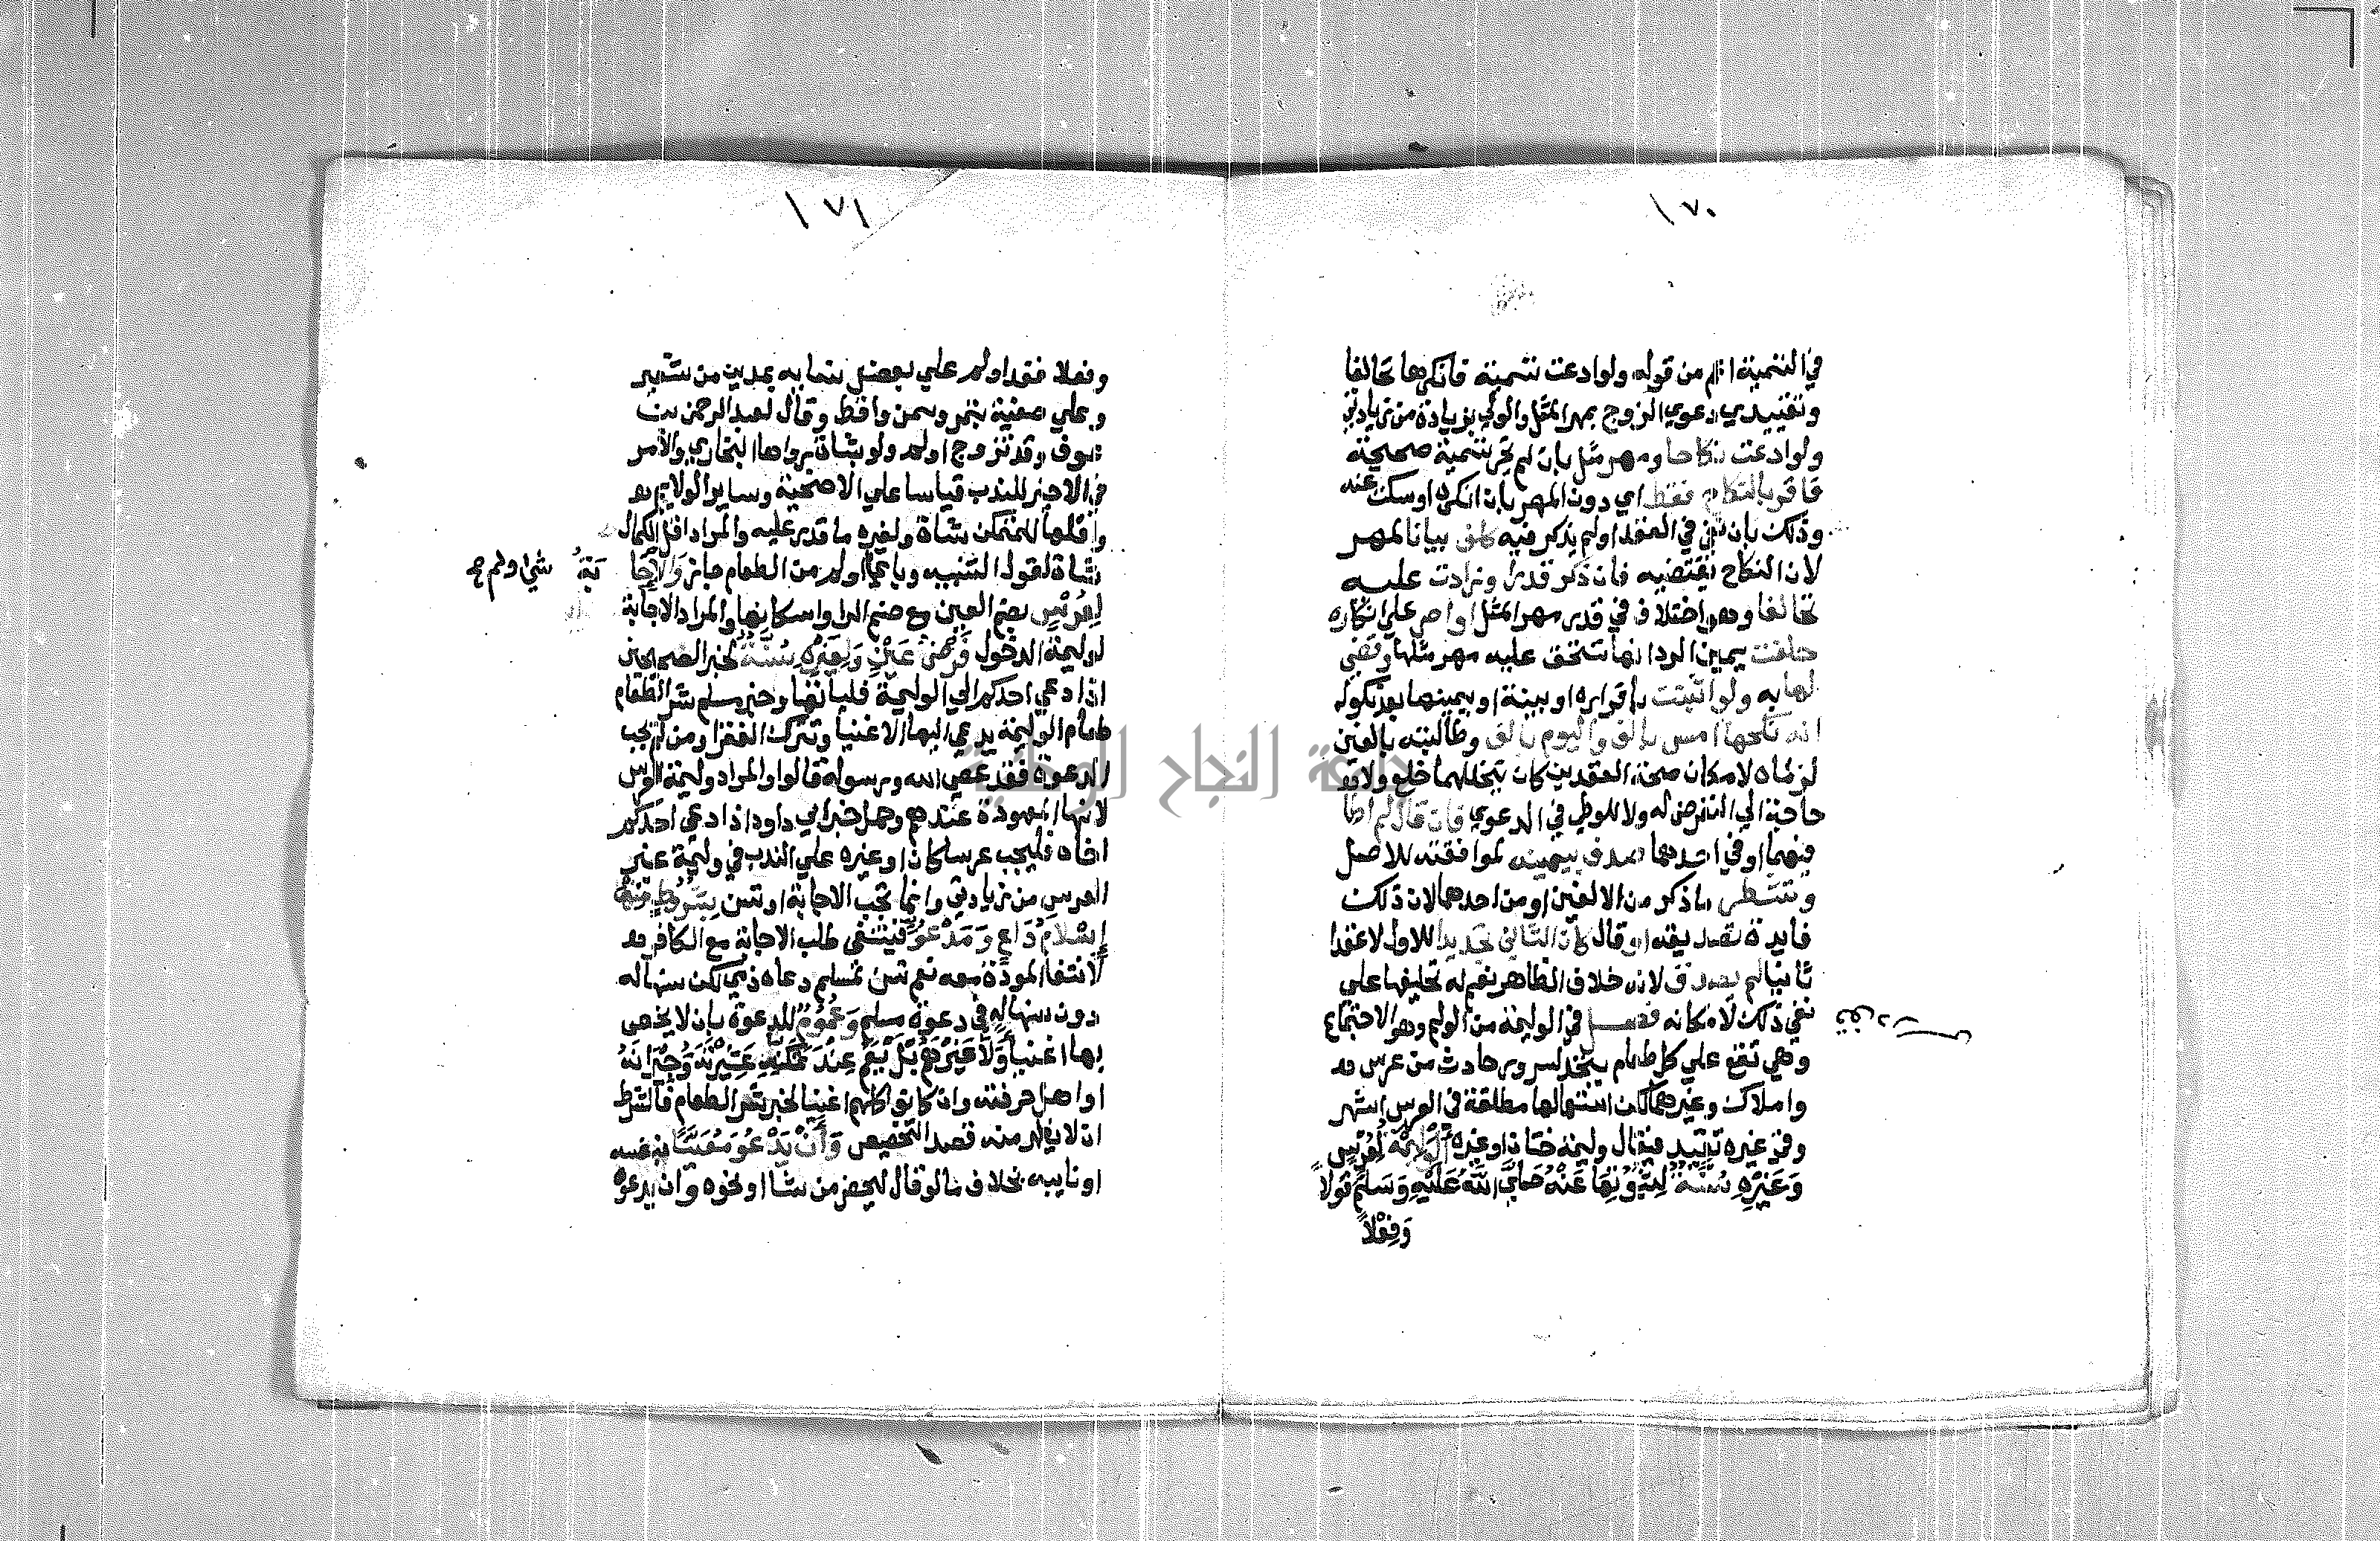 ١٧٠
في التسمية اعم من قوله ولو ادعت تسمية فانكرها تحالفا
وتقييدي دعوي الزوج بمهر المثل والولي بزيادة من زيادتي
ولو ادعت نكاحا ومهر مثل بان لم تجر تسمية صحيحة
فاقر بالنكاح فقط اي دون المهر بان انكره او سكت عنه
وذلك بان نفي في العقد او لم يذكر فيه كلف بيانا لمهر
لان النكاح يقتضيه فان ذكر قدرا وزادت عليه
تحالفا وهو اختلاف في قدر مهر المثل او اصر علي انكاره
حلفت يمين الرد انها تستحق عليه مهر مثلها وقضي
لها به ولو اثبتت باقراره او ببينة او بيمينها بعد نكوله
انه نكحها امس بالف واليوم بالف وطالبته بالفين
لزماه لامكان صحة العقدين كان يتخللهما خلع ولا
حاجة الي التعرض له ولا للوطي في الدعوي فان قال لم اطا
فيهما او في احدهما صدق بيمينه لموافقته للاصل
وتشطر ما ذكر من الالفين او من احدهما لان ذلك
فايدة تصديقه او قال كان الثاني تجديدا للاول لا عقدا
ثانيا لم يصدق لانه خلاف الظاهر نعم له تحليفها علي
نفي ذلك لامكانه فصل في الوليمة من الولم وهو الاجتماع
وهي تقع علي كل طعام يتخذ لسرور حادث من عرس
واملاك وغيرهما لكن استعمالها مطلقة في العرس اشهر
وفي غيره تقيد فيقال وليمة ختان او غيره الوليمة لعرس
وَغَيْرِهِ سُنَّةٌ لِثُبُوتِهَا عَنْهُ صَلَّي اللَّهُ عَلَيْهِ وَسَلَّمَ قَوْلاً
وَفِعْلاً
١٧١
وفعلا فقد اولم علي بعض نسايه بمدين من شعير
وعلي صفية بتمر وسمن واقط وقال لعبد الرحمن بن
عوف وقد تزوج اولم ولو بشاة رواها البخاري والامر
في الاخير للندب قياسا علي الاضحية وساير الولايم
واقلها للمتمكن شاة ولغيره ما قدر عليه والمراد اقل الكمال
شاة لقول التنبيه وباي شيء اولم من الطعام جاز وَالاِجَابَةُ
لِعُرْسٍ بضم العين مع ضم الرا واسكانها والمراد الاجابة
لوليمة الدخول فَرْضُ عَيْنٍ وَلِغَيْرِهِ سُنَّةٌ لخبر الصحيحين
اذا دعي احدكم الي الوليمة فلياتها وخبر مسلم شر الطعام
طعام الوليمة يدعي اليها الاغنيا وتترك الفقرا ومن لم يجب
الدعوة فقد عصي الله ورسوله قالوا والمراد وليمة العرس
لانها المعهودة عندهم وحمل خبر ابي داود اذا دعي احدكم
اخاه فليجب عرسا كان او غيره علي الندب في وليمة غير
العرس من زيادتي وانما تجب الاجابة او تسن بِشُرُوطٍ مِنْهَا
إِسْلَامُ دَاعٍ وَمَدْعُوٍّ فينتفي طلب الاجابة مع الكافر
لانتفا المودة معه نعم تسن لمسلم دعاه ذمي لكن سنها له
دون سنها له في دعوة مسلم وَعُمُومٌ للدعوة بان لا يخص
بها اغنيا وَلاَ غَيْرَهُمْ بَلْ يَعُمُّ عِنْدَ تَمَكُّنِهِ عَشِيْرَتَهُ وَجِيْرَانَهُ
او اهل حرفته وان كانوا كلهم اغنيا لخبر شر الطعام فالشرط
ان لا يظهر منه قصد التخصيص وَأَنْ يَدْعُوَ مُعَيَّنًا بنفسه
او نايبه بخلاف ما لو قال ليحضر من شا او نحوه وان يدعوه
جامعة النجاح الوطنية